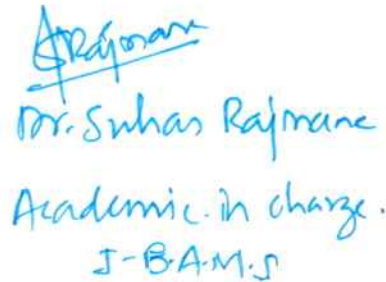 SRajmane
Dr. Suhas Rajmane
Academic. in charge.
I - B.A.M.S